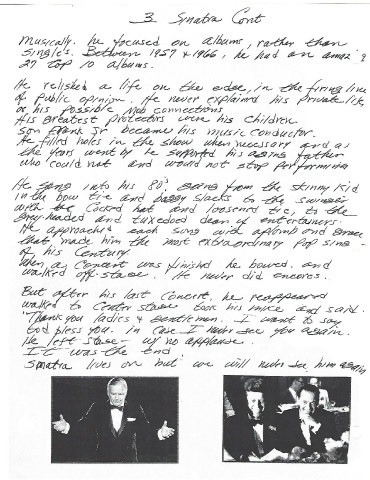 3 Sinatra Cont
Musically. he focused on albums, rather than
single's. Between 1957 & 1966, he had an amaz g
27 top 10 albums.
He relished a life on the edge, in the firing line
of public opinion. He never explained his private life
or his possible Mob connections
His greatest protectors were his children
son Frank Jr became his music conductor.
He filled holes in the show when necessary and as
the years went by he supported his aging father
who could not and would not stop performing
He sang into his 80's, going from the skinny kid
in the bow tie and baggy slacks to the swinger
with the cocked hat and loosened tie, to the
grey-headed and tuxedoed dean of entertainers.
He approached each song with aplomb and grace
that made him the most extraordinary pop singer
of his Century.
When a concert was finished he bowed, and
walked off-stage. He never did encores.
But after his last concert, he reappeared
walked to center stage took his mike and said.
"Thank you ladies & gentlemen. I want to say
God bless you. in case I never see you again.
He left stage - w/ no applause.
It was the End
Sinatra lives on but we will never see him again